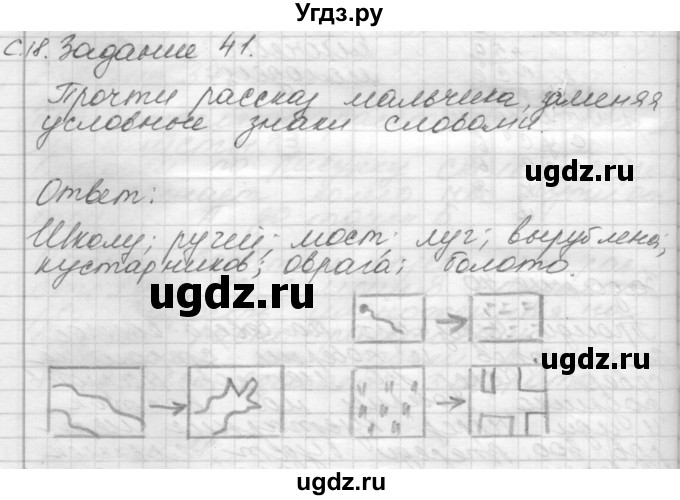 Угдз.ру
С.18. Задание 41.
Прочти рассказ мальчика, заменяя
условные знаки словами.
ugdz.ru
Ответ:
Школу; ручей; мост; луг; вырублена;
ugdz.ru
кустарников; оврага; болото.
ugdz.ru
ugdz.ru
ugdz.ru